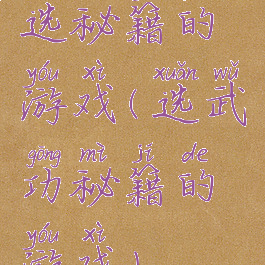 选秘籍的
yóu xì xuǎn wǔ
游戏(选武
gōng mì jí de
功秘籍的
yóu xì
游戏)